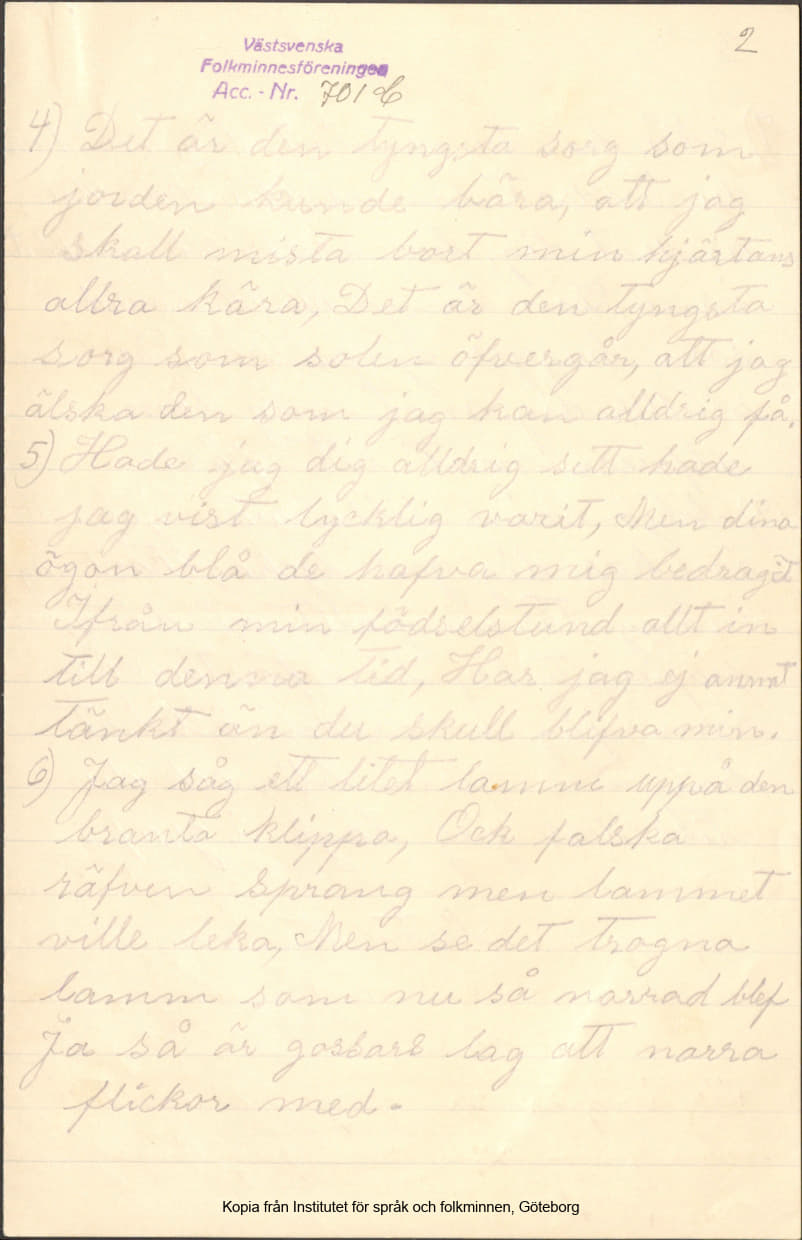 2
Västsvenska
Folkminnesföreningen
Acc. - Nr. 701 C
4) Det är den tyngsta sorg som
jorden kunde bära, att jag
skall mista bort min hjärtans
allra kära, Det är den tyngsta
sorg som solen öfvergår, att jag
älska den som jag kan alldrig få.
5) Hade jag dig alldrig sett hade
jag vist lycklig varit, Men dina
ögon blå de hafva mig bedragit
Ifrån min födselstund allt in
till denna tid, Har jag ej annat
tänkt än du skull blifva min.
6) Jag såg ett litet lamm uppå den
branta klippa, Ock falska
räfven sprang men lammet
ville leka, Men se det trogna
lamm som nu så narrad blef
Ja så är gossars lag att narra
flickor med.
Kopia från Institutet för språk och folkminnen, Göteborg